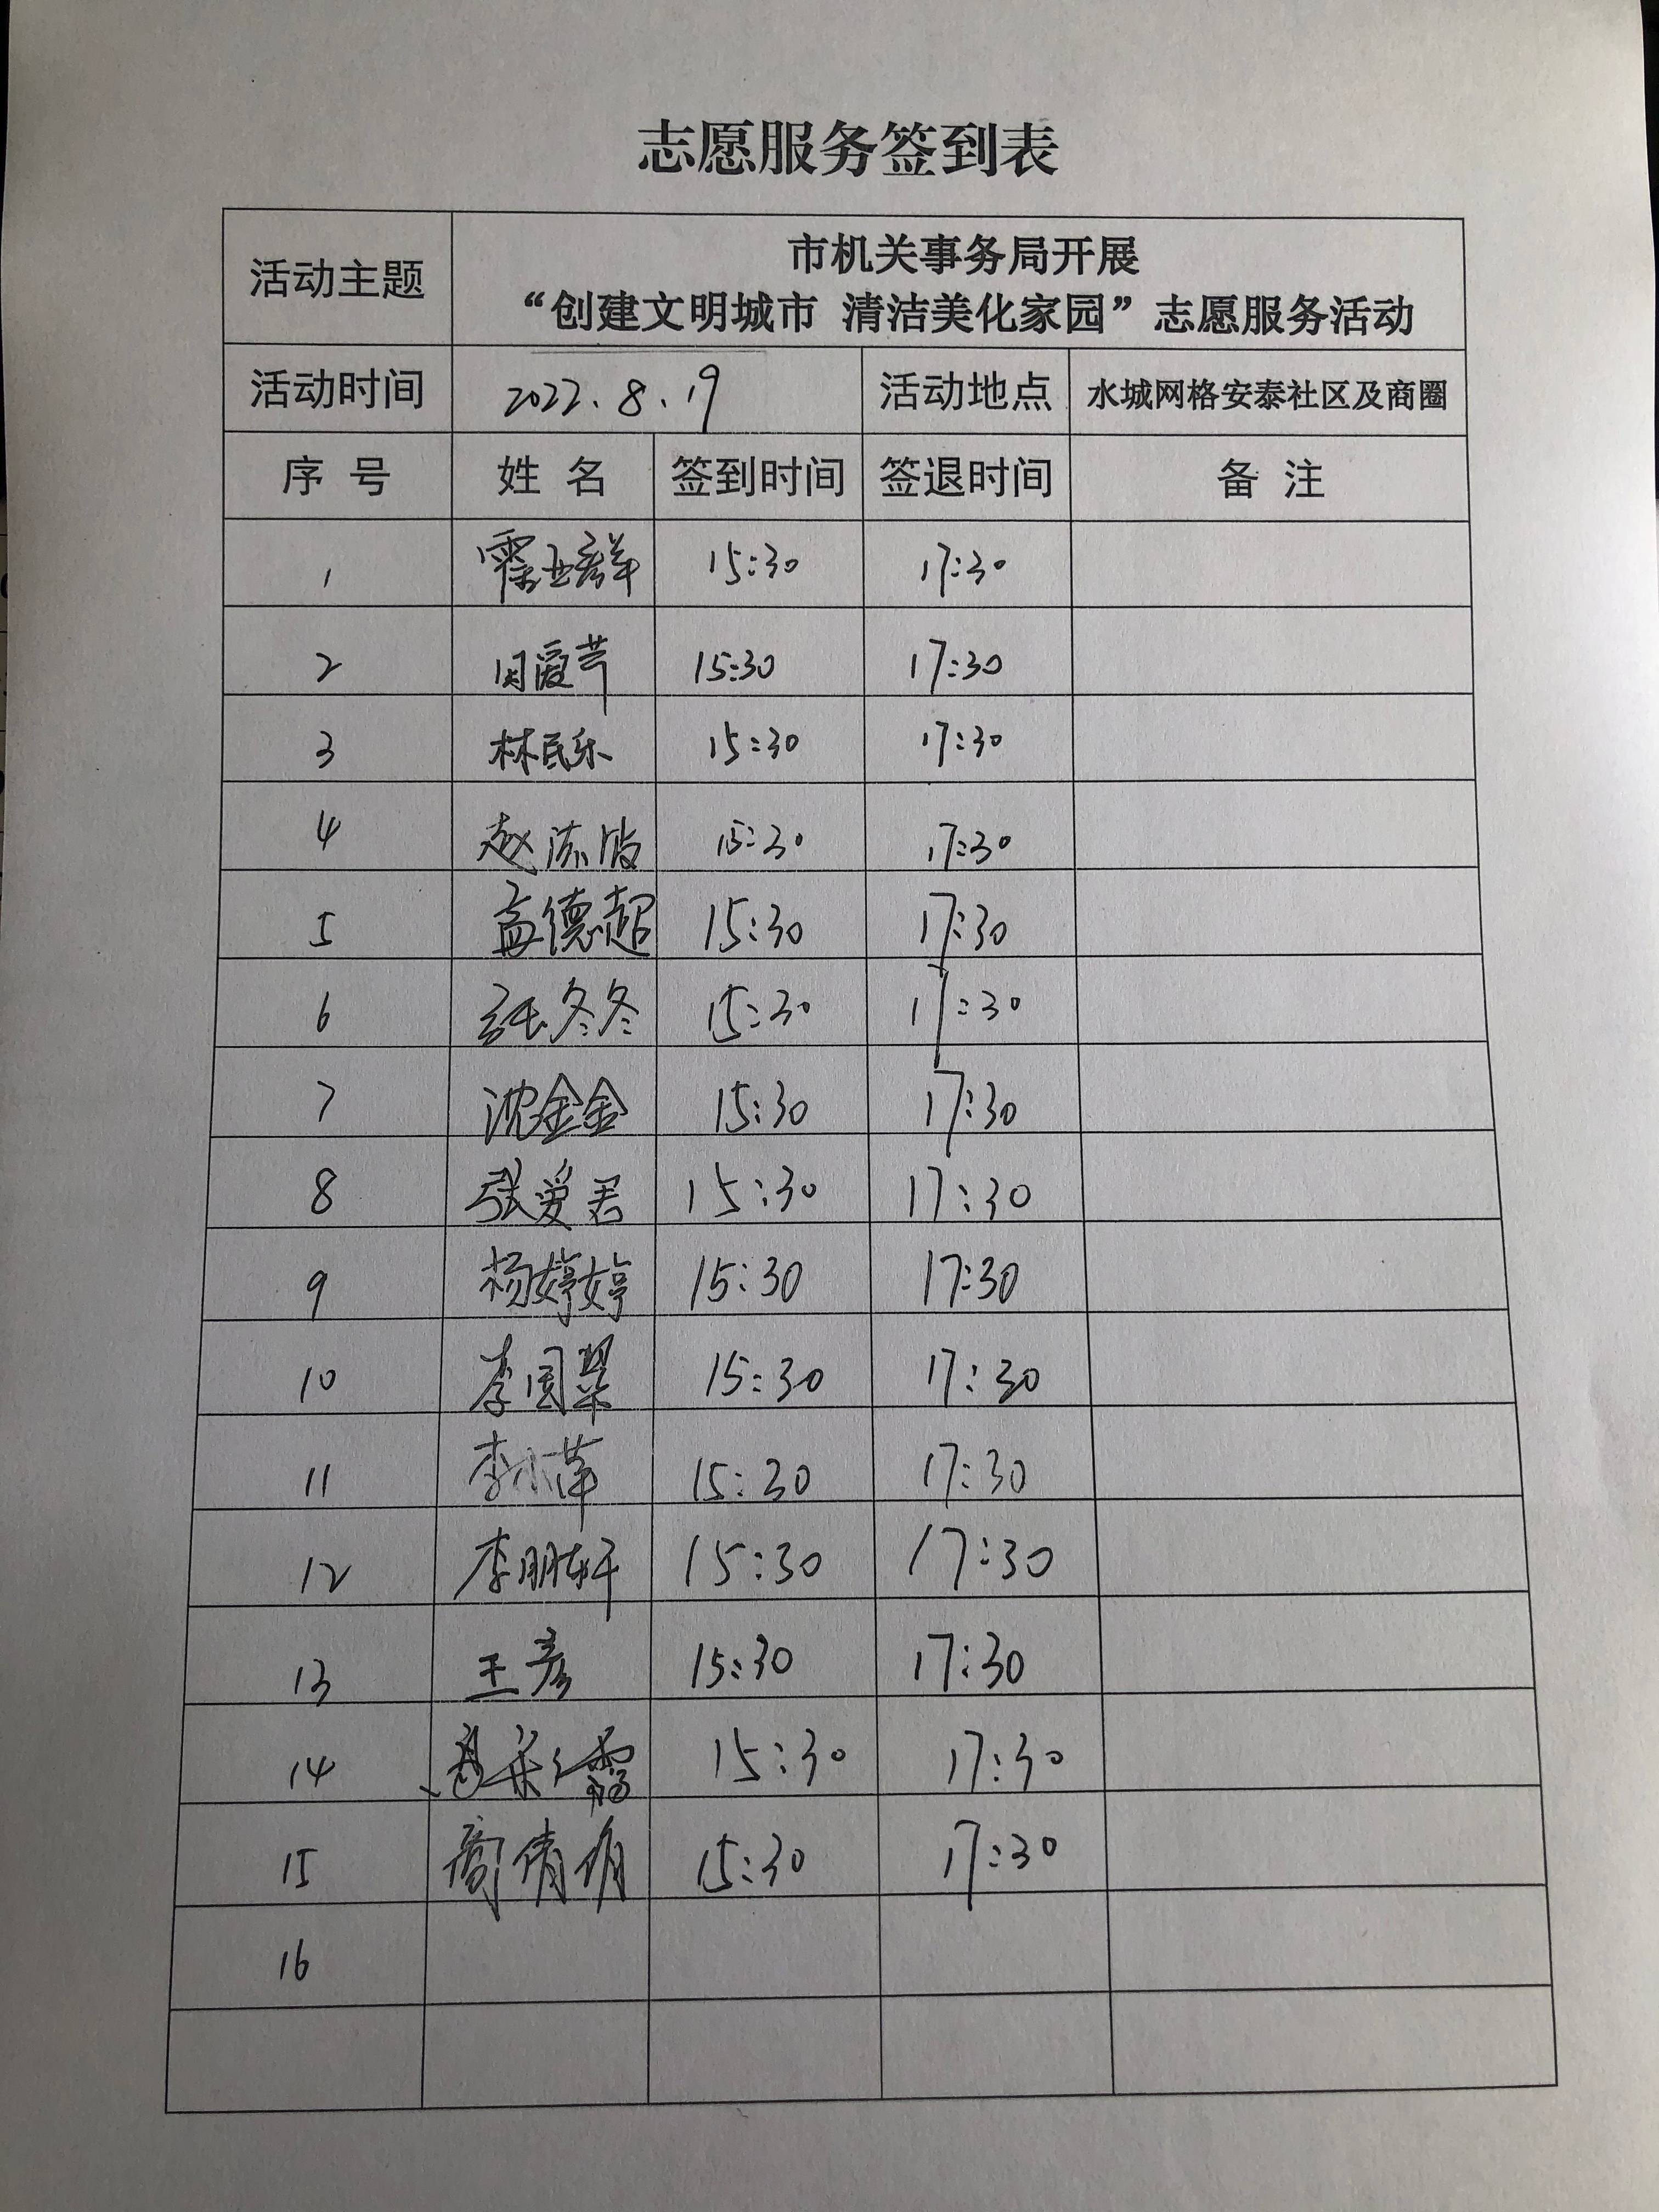 志愿服务签到表
活动主题
市机关事务局开展
“创建文明城市 清洁美化家园”志愿服务活动
活动时间 2022.8.19 活动地点 水城网格安泰社区及商圈
序 号 姓 名 签到时间 签退时间 备 注
1 15:30 17:30
2 15:30 17:30
3 林民乐 15:30 17:30
4 赵 15:30 17:30
5 孟德超 15:30 17:30
6 张冬冬 15:30 17:30
7 沈金金 15:30 17:30
8 张爱君 15:30 17:30
9 杨婷婷 15:30 17:30
10 李国翠 15:30 17:30
11 李小萍 15:30 17:30
12 李朋轩 15:30 17:30
13 王彦 15:30 17:30
14 15:30 17:30
15 15:30 17:30
16